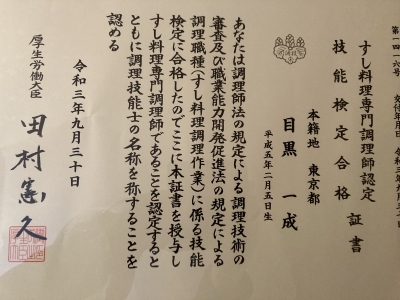 第一四一六号　交付年月日　令和三年九月三十日
すし料理専門調理師認定
技能検定合格証書
本籍地　東京都
目黒　一成
平成五年二月五日生
あなたは調理師法の規定による調理技術の
審査及び職業能力開発促進法の規定による
調理職種(すし料理調理作業)に係る技能
検定に合格したのでここに本証書を授与し
すし料理専門調理師であることを認定すると
ともに調理技能士の名称を称することを
認める
令和三年九月三十日
厚生労働大臣
田村憲久